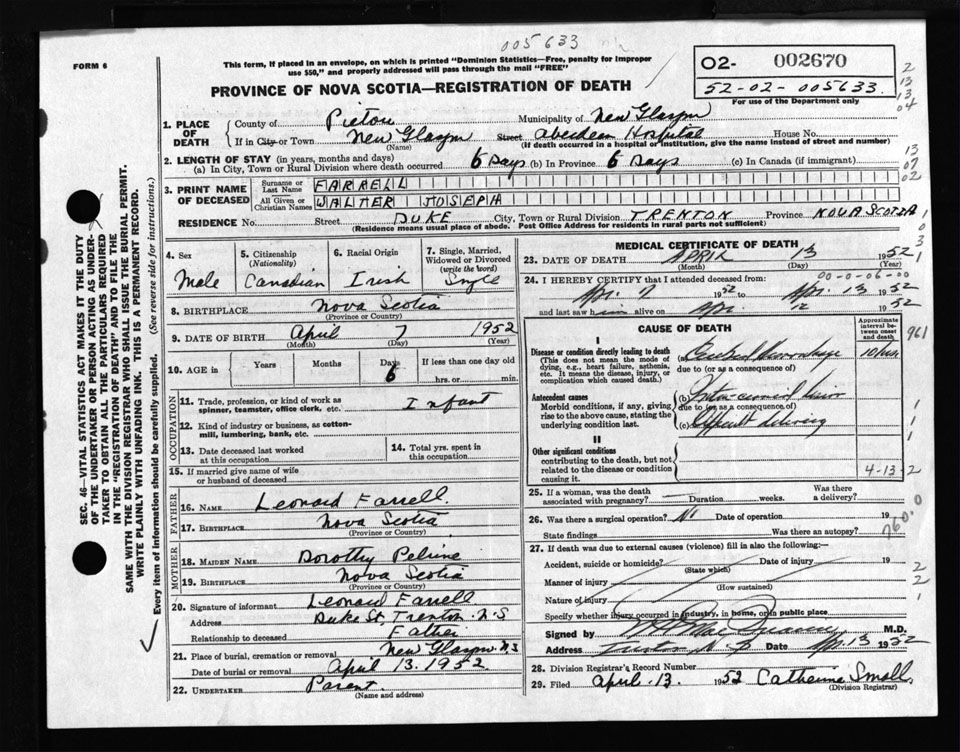 005633
FORM 6
This form, if placed in an envelope, on which is printed "Dominion Statistics—Free, penalty for improper
use $50," and properly addressed will pass through the mail "FREE"
PROVINCE OF NOVA SCOTIA—REGISTRATION OF DEATH
02- 002670
52-02-005633
For use of the Department only
2
13
13
04
13
07
02
1. PLACE OF DEATH
County of Pictou Municipality of New Glasgow
If in City or Town New Glasgow Street Aberdeen Hospital House No.
(Name) (If death occurred in a hospital or institution, give the name instead of street and number)
2. LENGTH OF STAY (in years, months and days)
(a) In City, Town or Rural Division where death occurred 6 Days (b) In Province 6 Days (c) In Canada (if immigrant)
3. PRINT NAME OF DECEASED
Surname or Last Name FARRELL
All Given or Christian Names WALTER JOSEPH
RESIDENCE No. Street DUKE City, Town or Rural Division TRENTON Province NOVA SCOTIA
(Residence means usual place of abode. Post Office Address for residents in rural parts not sufficient)
4. Sex Male
5. Citizenship (Nationality) Canadian
6. Racial Origin Irish
7. Single, Married, Widowed or Divorced (write the word) Single
8. BIRTHPLACE Nova Scotia
(Province or Country)
9. DATE OF BIRTH April 7 1952
(Month) (Day) (Year)
10. AGE in Years Months Days 6 If less than one day old
hrs. or min.
OCCUPATION
11. Trade, profession, or kind of work as
spinner, teamster, office clerk, etc. Infant
12. Kind of industry or business, as cotton-
mill, lumbering, bank, etc.
13. Date deceased last worked
at this occupation
14. Total yrs. spent in
this occupation
15. If married give name of wife
or husband of deceased
FATHER
16. NAME Leonard Farrell
17. BIRTHPLACE Nova Scotia
(Province or Country)
MOTHER
18. MAIDEN NAME Dorothy
19. BIRTHPLACE Nova Scotia
(Province or Country)
20. Signature of informant Leonard Farrell
Address Duke St, Trenton N.S
Relationship to deceased Father
21. Place of burial, cremation or removal New Glasgow N.S
Date of burial or removal April 13. 1952
22. UNDERTAKER Parent.
(Name and address)
MEDICAL CERTIFICATE OF DEATH
23. DATE OF DEATH APRIL 13 1952
(Month) (Day) (Year)
00-0-06-00
24. I HEREBY CERTIFY that I attended deceased from:
Apr. 7 1952 to Apr. 13 1952
and last saw him alive on Apr. 12 1952
CAUSE OF DEATH
Approximate interval between onset and death
I
Disease or condition directly leading to death
(This does not mean the mode of
dying, e.g., heart failure, asthenia,
etc. It means the disease, injury, or
complication which caused death.)
(a) Cerebral Hemorrhage
due to (or as a consequence of)
961
Antecedent causes
Morbid conditions, if any, giving
rise to the above cause, stating the
underlying condition last.
(b)
due to (or as a consequence of)
(c) Difficult delivery
II
Other significant conditions
contributing to the death, but not
related to the disease or condition
causing it.
4-13-2
25. If a woman, was the death
associated with pregnancy? Duration weeks. Was there
a delivery?
26. Was there a surgical operation? No Date of operation 19
State findings Was there an autopsy?
760.0
27. If death was due to external causes (violence) fill in also the following:—
Accident, suicide or homicide? Date of injury 19
(State which)
Manner of injury
(How sustained)
Nature of injury
Specify whether injury occurred in industry, in home, or in public place
Signed by M.D.
Address Date Apr 13 1952
28. Division Registrar's Record Number
29. Filed April. 13. 1952 Catherine Small
(Division Registrar)
SEC. 46—VITAL STATISTICS ACT MAKES IT THE DUTY
OF THE UNDERTAKER OR PERSON ACTING AS UNDER-
TAKER TO OBTAIN ALL THE PARTICULARS REQUIRED
IN THE "REGISTRATION OF DEATH" AND TO FILE THE
SAME WITH THE DIVISION REGISTRAR WHO SHALL ISSUE THE BURIAL PERMIT.
WRITE PLAINLY WITH UNFADING INK. THIS IS A PERMANENT RECORD.
Every item of information should be carefully supplied. (See reverse side for instructions.)